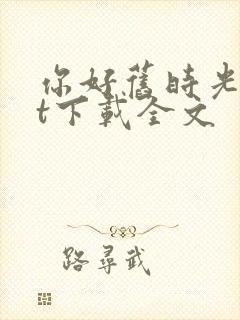 你好舊時光
t下載全文
路尋武